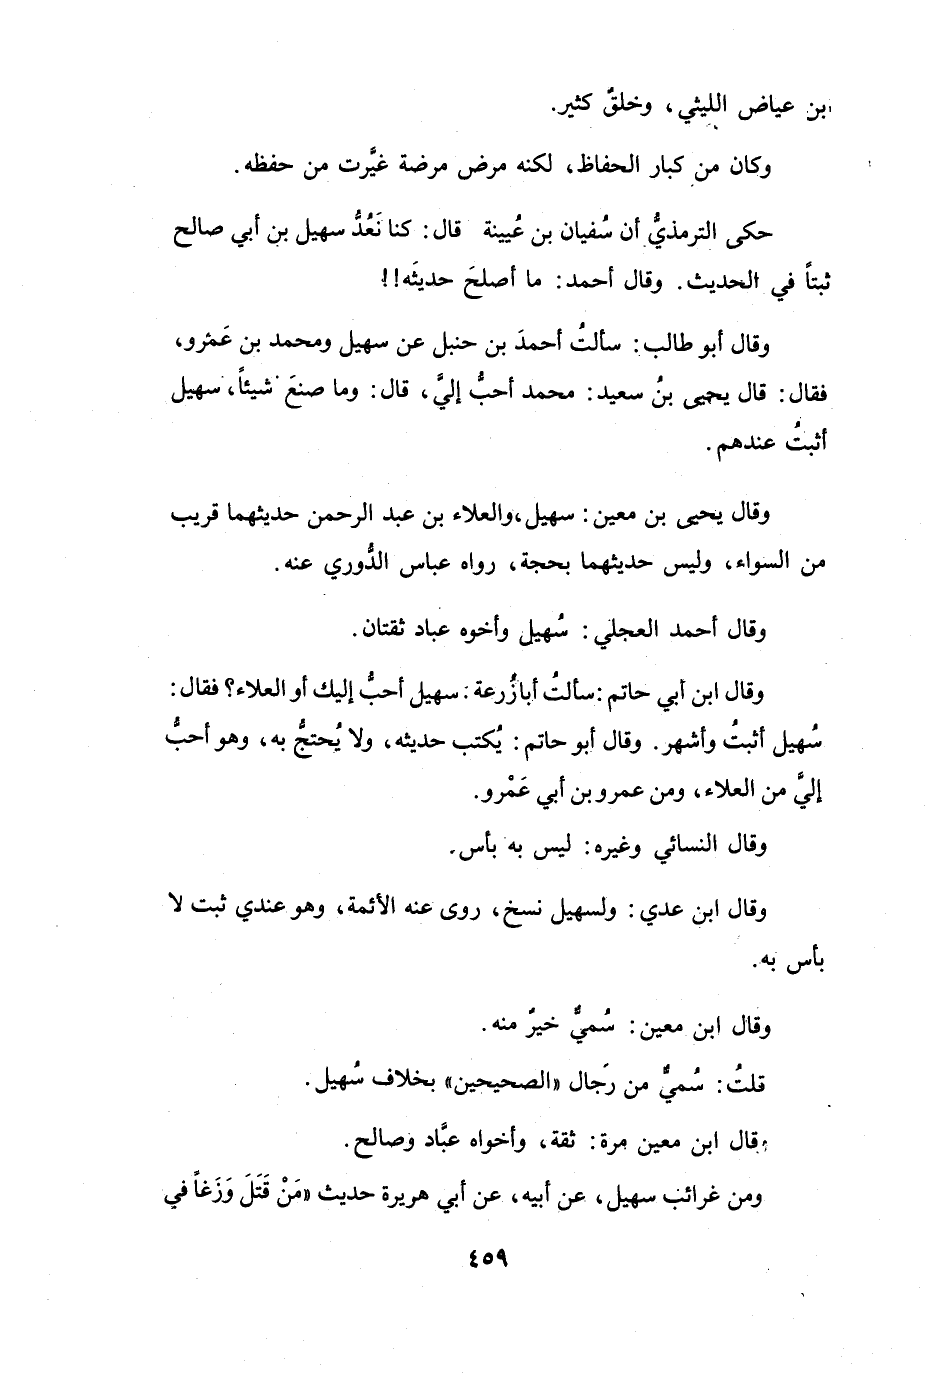 ابن عياض الليثي، وخلقٌ كثير.
وكان من كبار الحفاظ، لكنه مرض مرضة غيَّرت من حفظه.
حكى الترمذيُّ أن سُفيان بن عُيينة قال: كنا نَعُدُّ سهيل بن أبي صالح
ثبتاً في الحديث. وقال أحمد: ما أصلحَ حديثَه!!
وقال أبو طالب: سألتُ أحمدَ بن حنبل عن سهيل ومحمد بن عَمْرو،
فقال: قال يحيى بنُ سعيد: محمد أحبُّ إليَّ، قال: وما صنعَ شيئاً، سهيل
أثبتُ عندهم.
وقال يحيى بن معين: سهيل، والعلاء بن عبد الرحمن حديثهما قريب
من السواء، وليس حديثهما بحجة، رواه عباس الدُّوري عنه.
وقال أحمد العجلي: سُهيل وأخوه عباد ثقتان.
وقال ابن أبي حاتم: سألتُ أبا زُرعة: سهيل أحبُّ إليك أو العلاء؟ فقال:
سُهيل أثبتُ وأشهر. وقال أبو حاتم: يُكتب حديثه، ولا يُحتجُّ به، وهو أحبُّ
إليَّ من العلاء، ومن عمرو بن أبي عَمْرو.
وقال النسائي وغيره: ليس به بأس.
وقال ابن عدي: ولسهيل نسخ، روى عنه الأئمة، وهو عندي ثبت لا
بأس به.
وقال ابن معين: سُميٌّ خيرٌ منه.
قلتُ: سُميٌّ من رَجال «الصحيحين» بخلاف سُهيل.
وقال ابن معين مرة: ثقة، وأخواه عبَّاد وصالح.
ومن غرائب سهيل، عن أبيه، عن أبي هريرة حديث «مَنْ قَتَلَ وَزَغاً في
٤٥٩